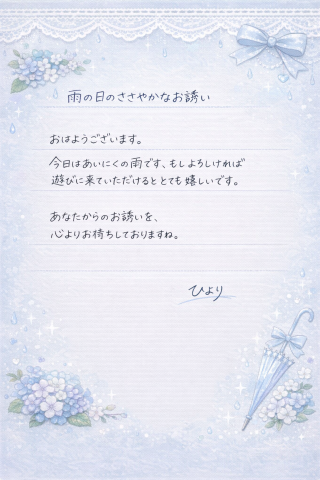 雨の日のささやかなお誘い
おはようございます。
今日はあいにくの雨です、もしよろしければ
遊びに来ていただけるととても嬉しいです。
あなたからのお誘いを、
心よりお待ちしておりますね。
ひより